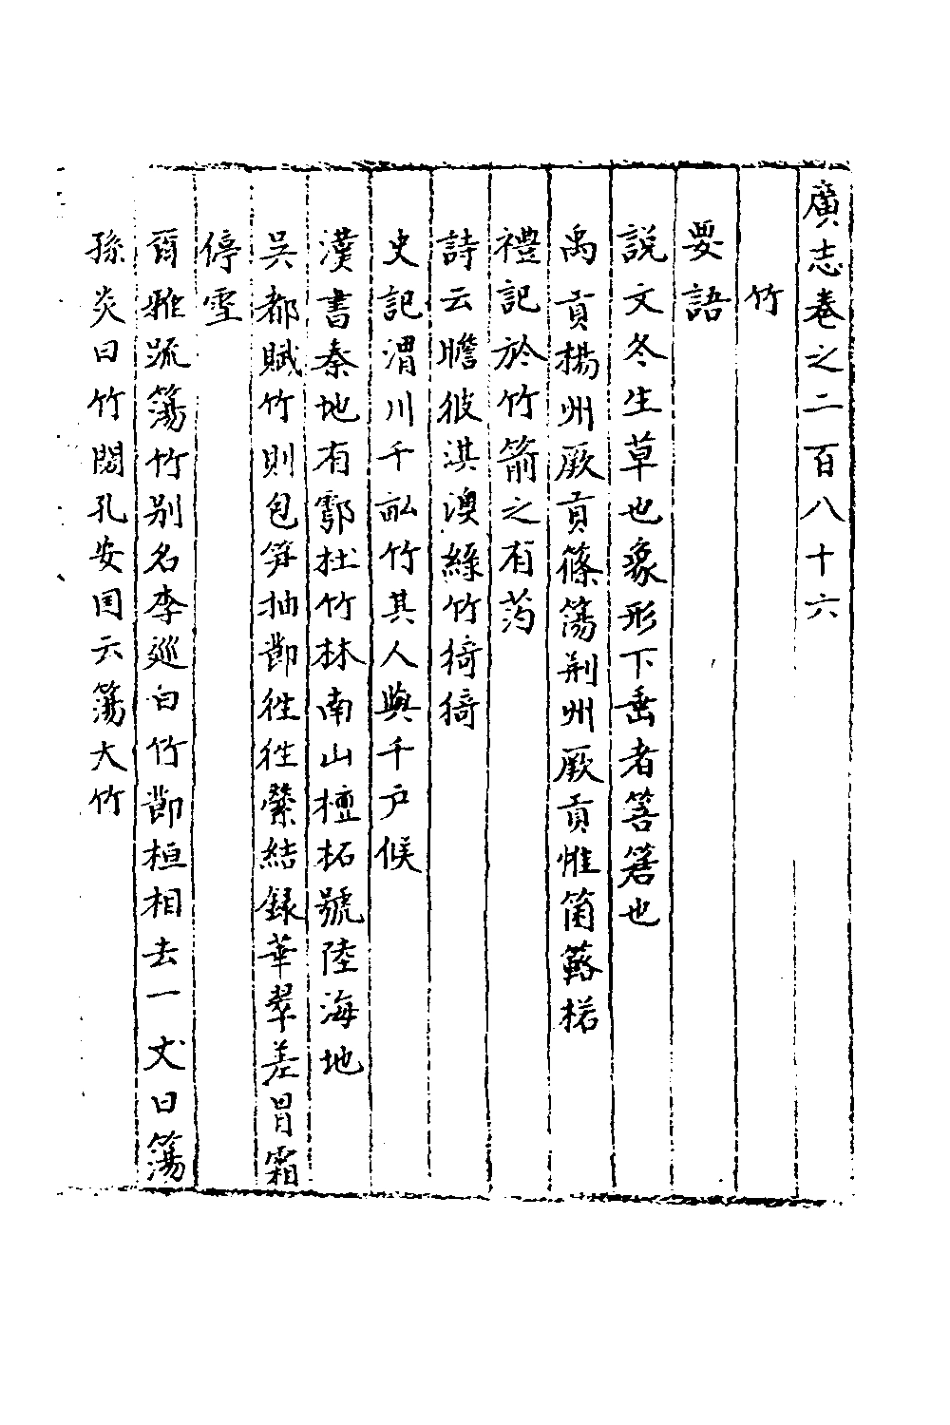 廣志卷之二百八十六
竹
要語
説文冬生草也象形下垂者箁箬也
禹貢楊州厥貢篠簜荆州厥貢惟箘簵楛
禮記於竹箭之有筠
詩云瞻彼淇澳緑竹猗猗
史記渭川千畝竹其人與千户候
漢書秦地有鄠杜竹林南山檀柘號陸海地
呉都賦竹則包笋抽節徃徃縈結録華翠差冒霜
停雪
爾雅疏簜竹别名李巡曰竹節桓相去一丈曰簜
孫炎曰竹闊孔安国云簜大竹